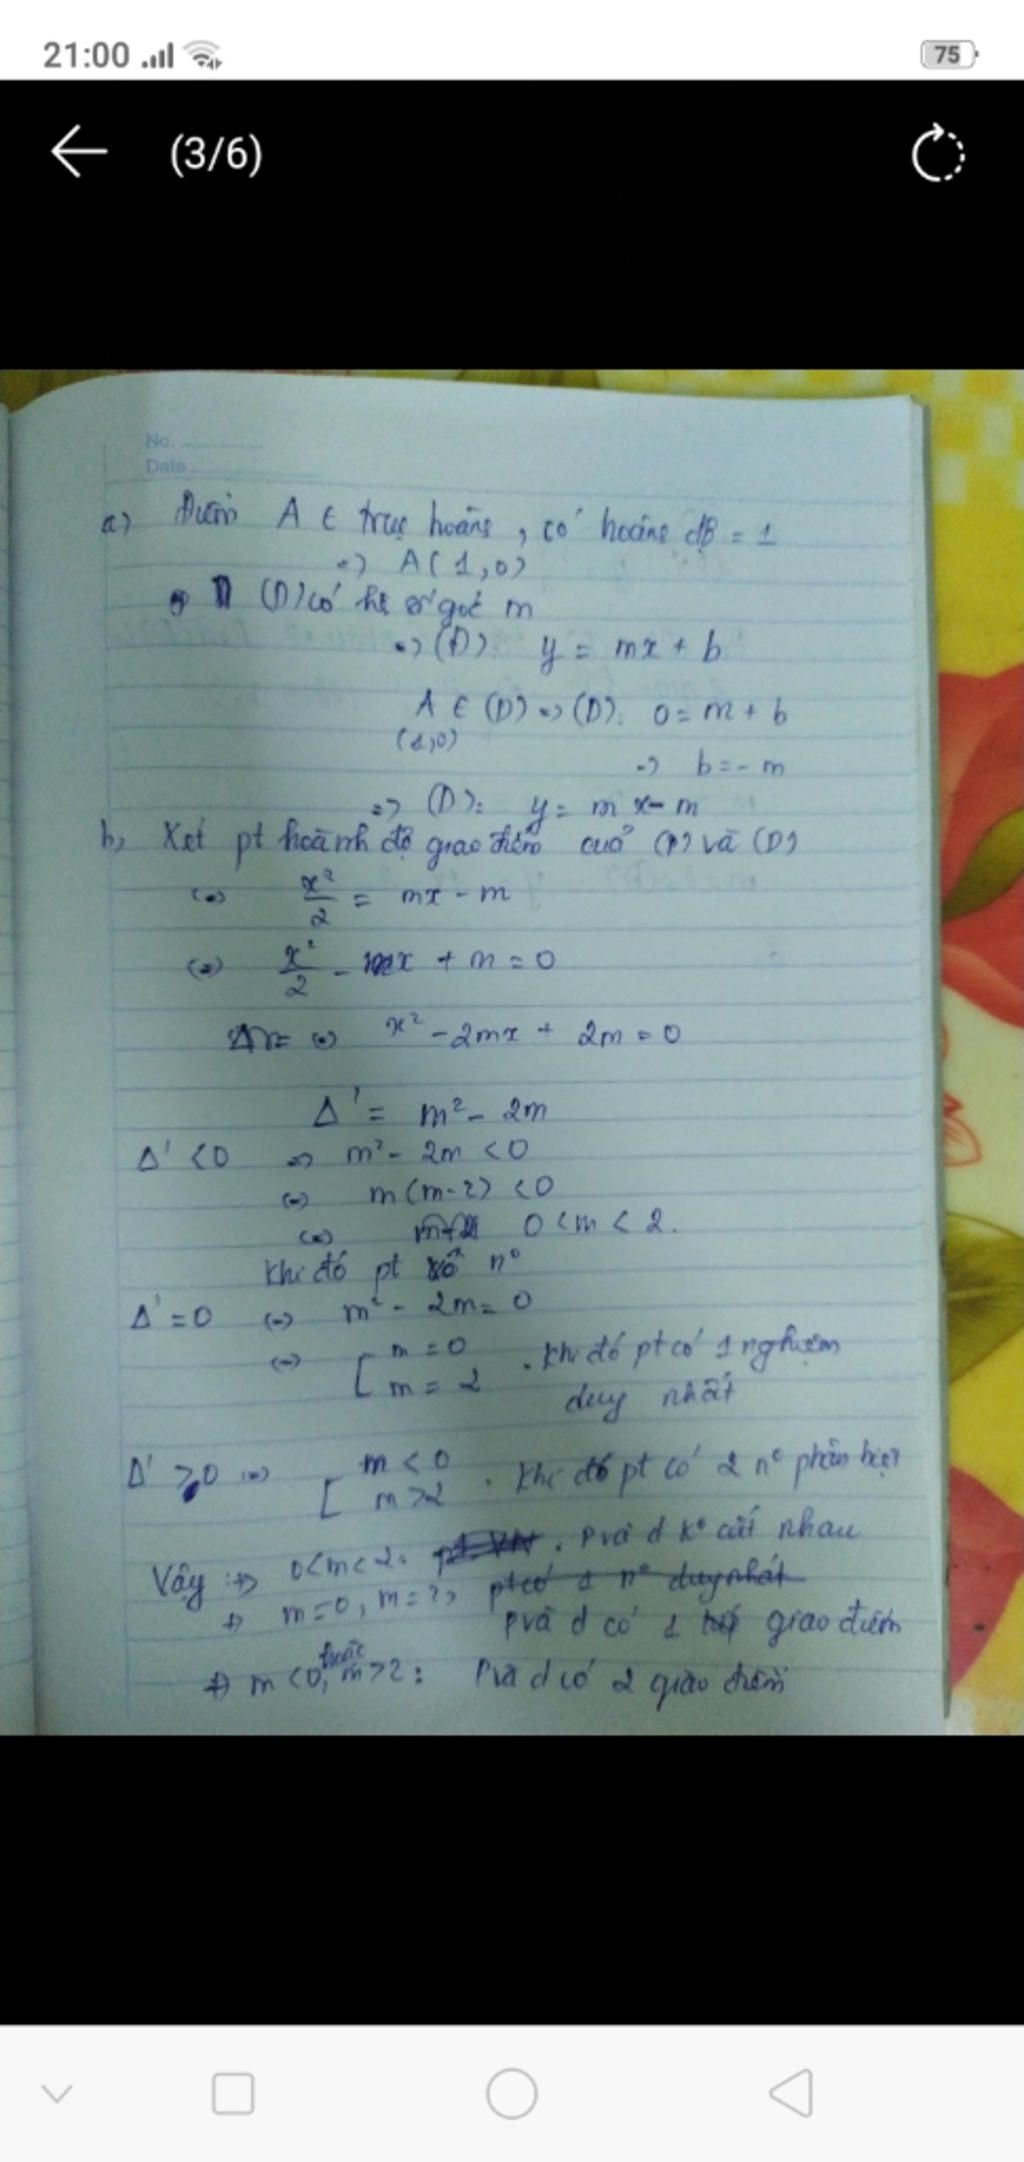 21:00
75
(3/6)
No.
Date
a) Điểm A ∈ trục hoành, có hoành độ = 1
=> A(1,0)
(D) có hệ số góc m
=> (D): y = mx + b
A ∈ (D) => (D): 0 = m + b
(1,0)
=> b = - m
=> (D): y = mx - m
b, Xét pt hoành độ giao điểm của (P) và (D)
(=) x²/2 = mx - m
(=) x²/2 - mx + m = 0
(=) x² - 2mx + 2m = 0
Δ' = m² - 2m
Δ' < 0 => m² - 2m < 0
(=) m(m-2) < 0
(=) 0 < m < 2.
Khi đó pt vô n°
Δ' = 0 (=) m² - 2m = 0
(=) [ m = 0
m = 2 . Khi đó pt có 1 nghiệm
duy nhất
Δ' > 0 (=) [ m < 0
m > 2 . Khi đó pt có 2 n° phân biệt
Vậy => 0 < m < 2. P và d k° cắt nhau
+) m = 0, m = 2, pt có 1 n° duy nhất
P và d có 1 giao điểm
+) m < 0, hoặc m > 2 : P và d có 2 giao điểm